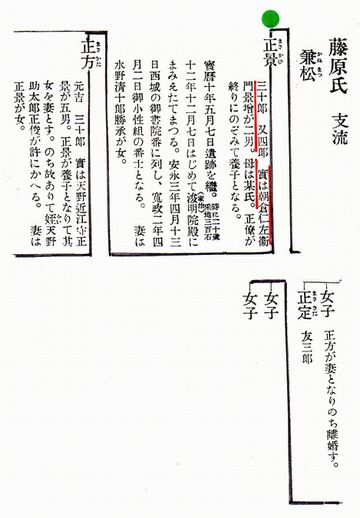 藤原氏 支流
兼松
かねまつ
正景
まさかげ
三十郎 又四郎 實は朝倉仁左衞
門景增が二男。母は某氏。正僚が
終りにのぞみて養子となる。
寳曆十年五月七日遺跡を繼。時に二十歲采地三百石
十二年十二月七日はじめて浚明院殿に
(家治)
まみえたてまつる。安永三年四月十三
日西城の御書院番に列し、寬政二年四
月二日御小性組の番士となる。 妻は
水野淸十郎勝承が女。
正方
まさかた
元吉 三十郎 實は天野近江守正
景が五男。正景が養子となりて其
女を妻とす。のち故ありて姪天野
助太郎正俊が許にかへる。 妻は
正景が女。
女子 正方が妻となりのち離婚す。
正定 友三郎
まささだ
女子
女子